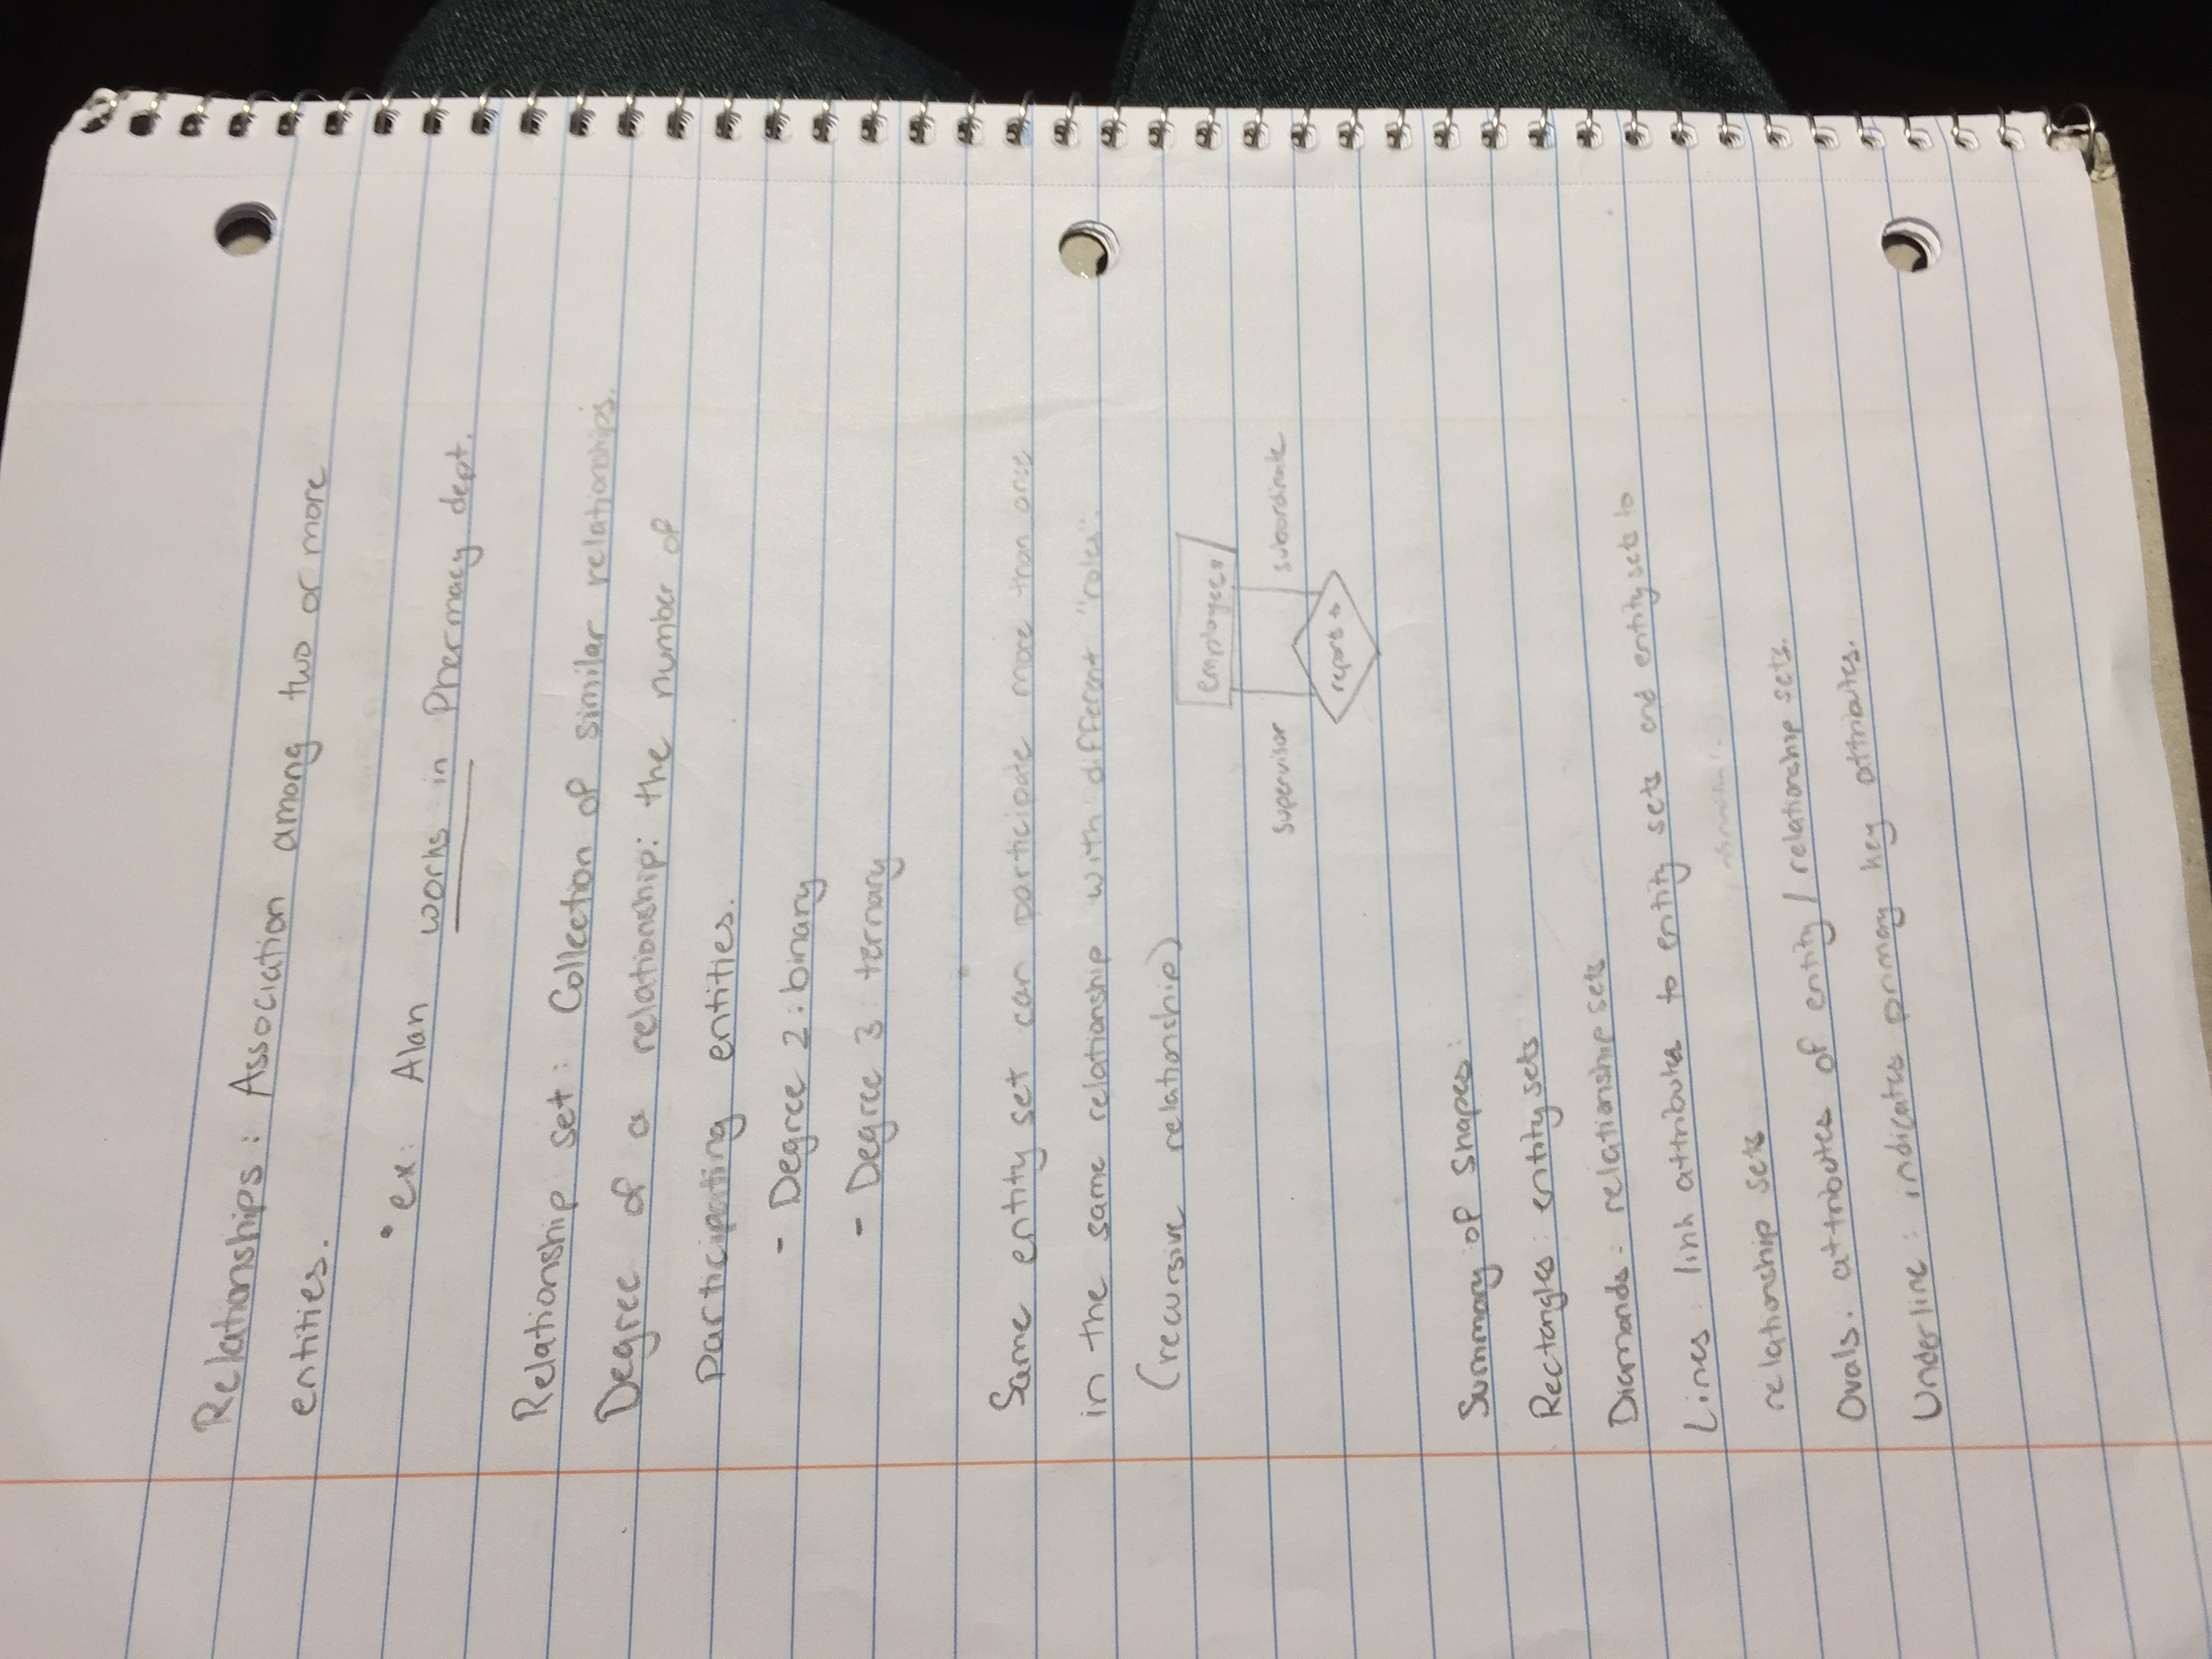 Relationships: Association among two or more
entities.
• ex: Alan works in Pharmacy dept.
Relationship set: Collection of similar relationships.
Degree of a relationship: the number of
Participating entities.
- Degree 2: binary
- Degree 3: ternary
Same entity set can participate more than once
in the same relationship with different "roles".
(recursive relationship)
employees
supervisor subordinate
reports to
Summary of Shapes:
Rectangles: entity sets
Diamonds: relationship sets
Lines: link attributes to entity sets and entity sets to
relationship sets
Ovals: attributes of entity / relationship sets.
Underline: indicates primary key attributes.